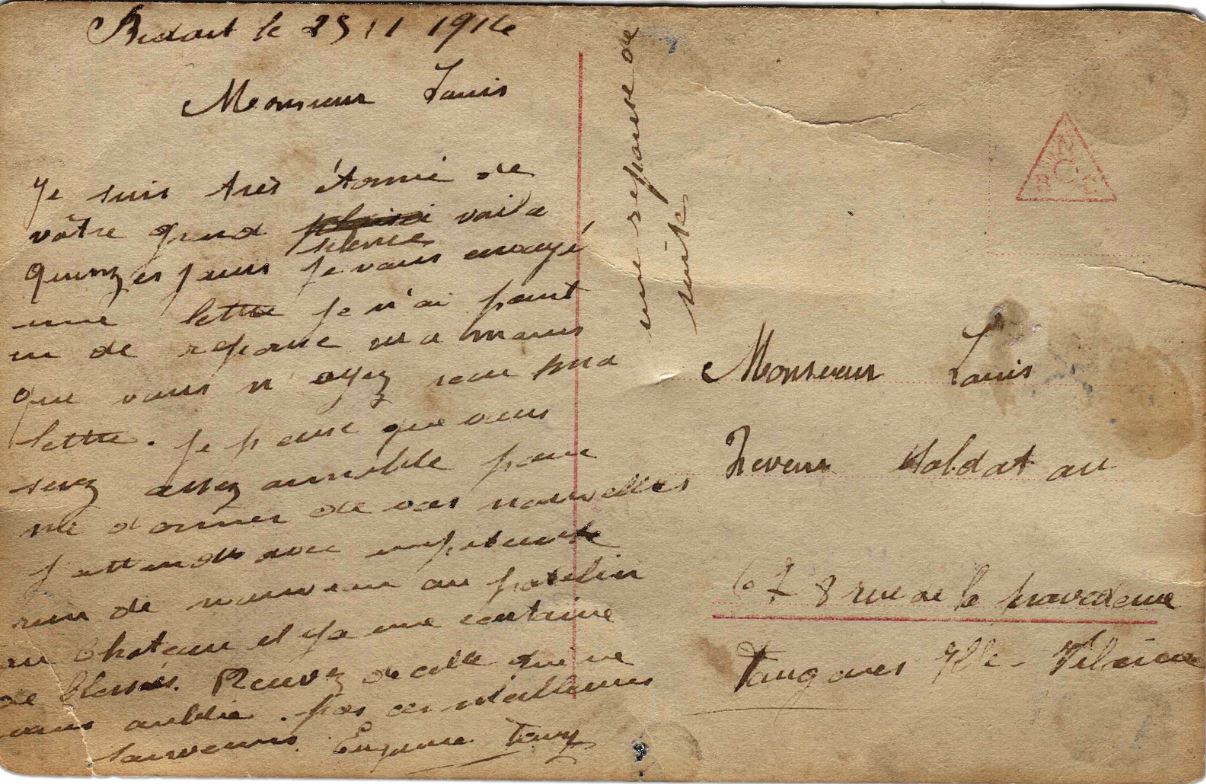 Bidart le 25 11 1914
Monsieur Louis
Je suis très étonné de
vôtre grand plaisir voila
silence
quinzes jours je vous envoyé
une lettre je n'ai pout
eu de reponse
que vous n'ayez ma
lettre. Je pense que vous
serez assez aimable pour
me donner de vos nouvelles
J'attends avec impatiente
rien de nouveau au patelin
au Chateau il y a une centaine
de blessés. Recevez de celle qui ne
vous oublie. pas ces meilleures
souvenirs. Eugenie
une reponse de
suite
Monsieur Louis
Soldat au
67 8 rue de la providence
Fougares Ille-Vilaine